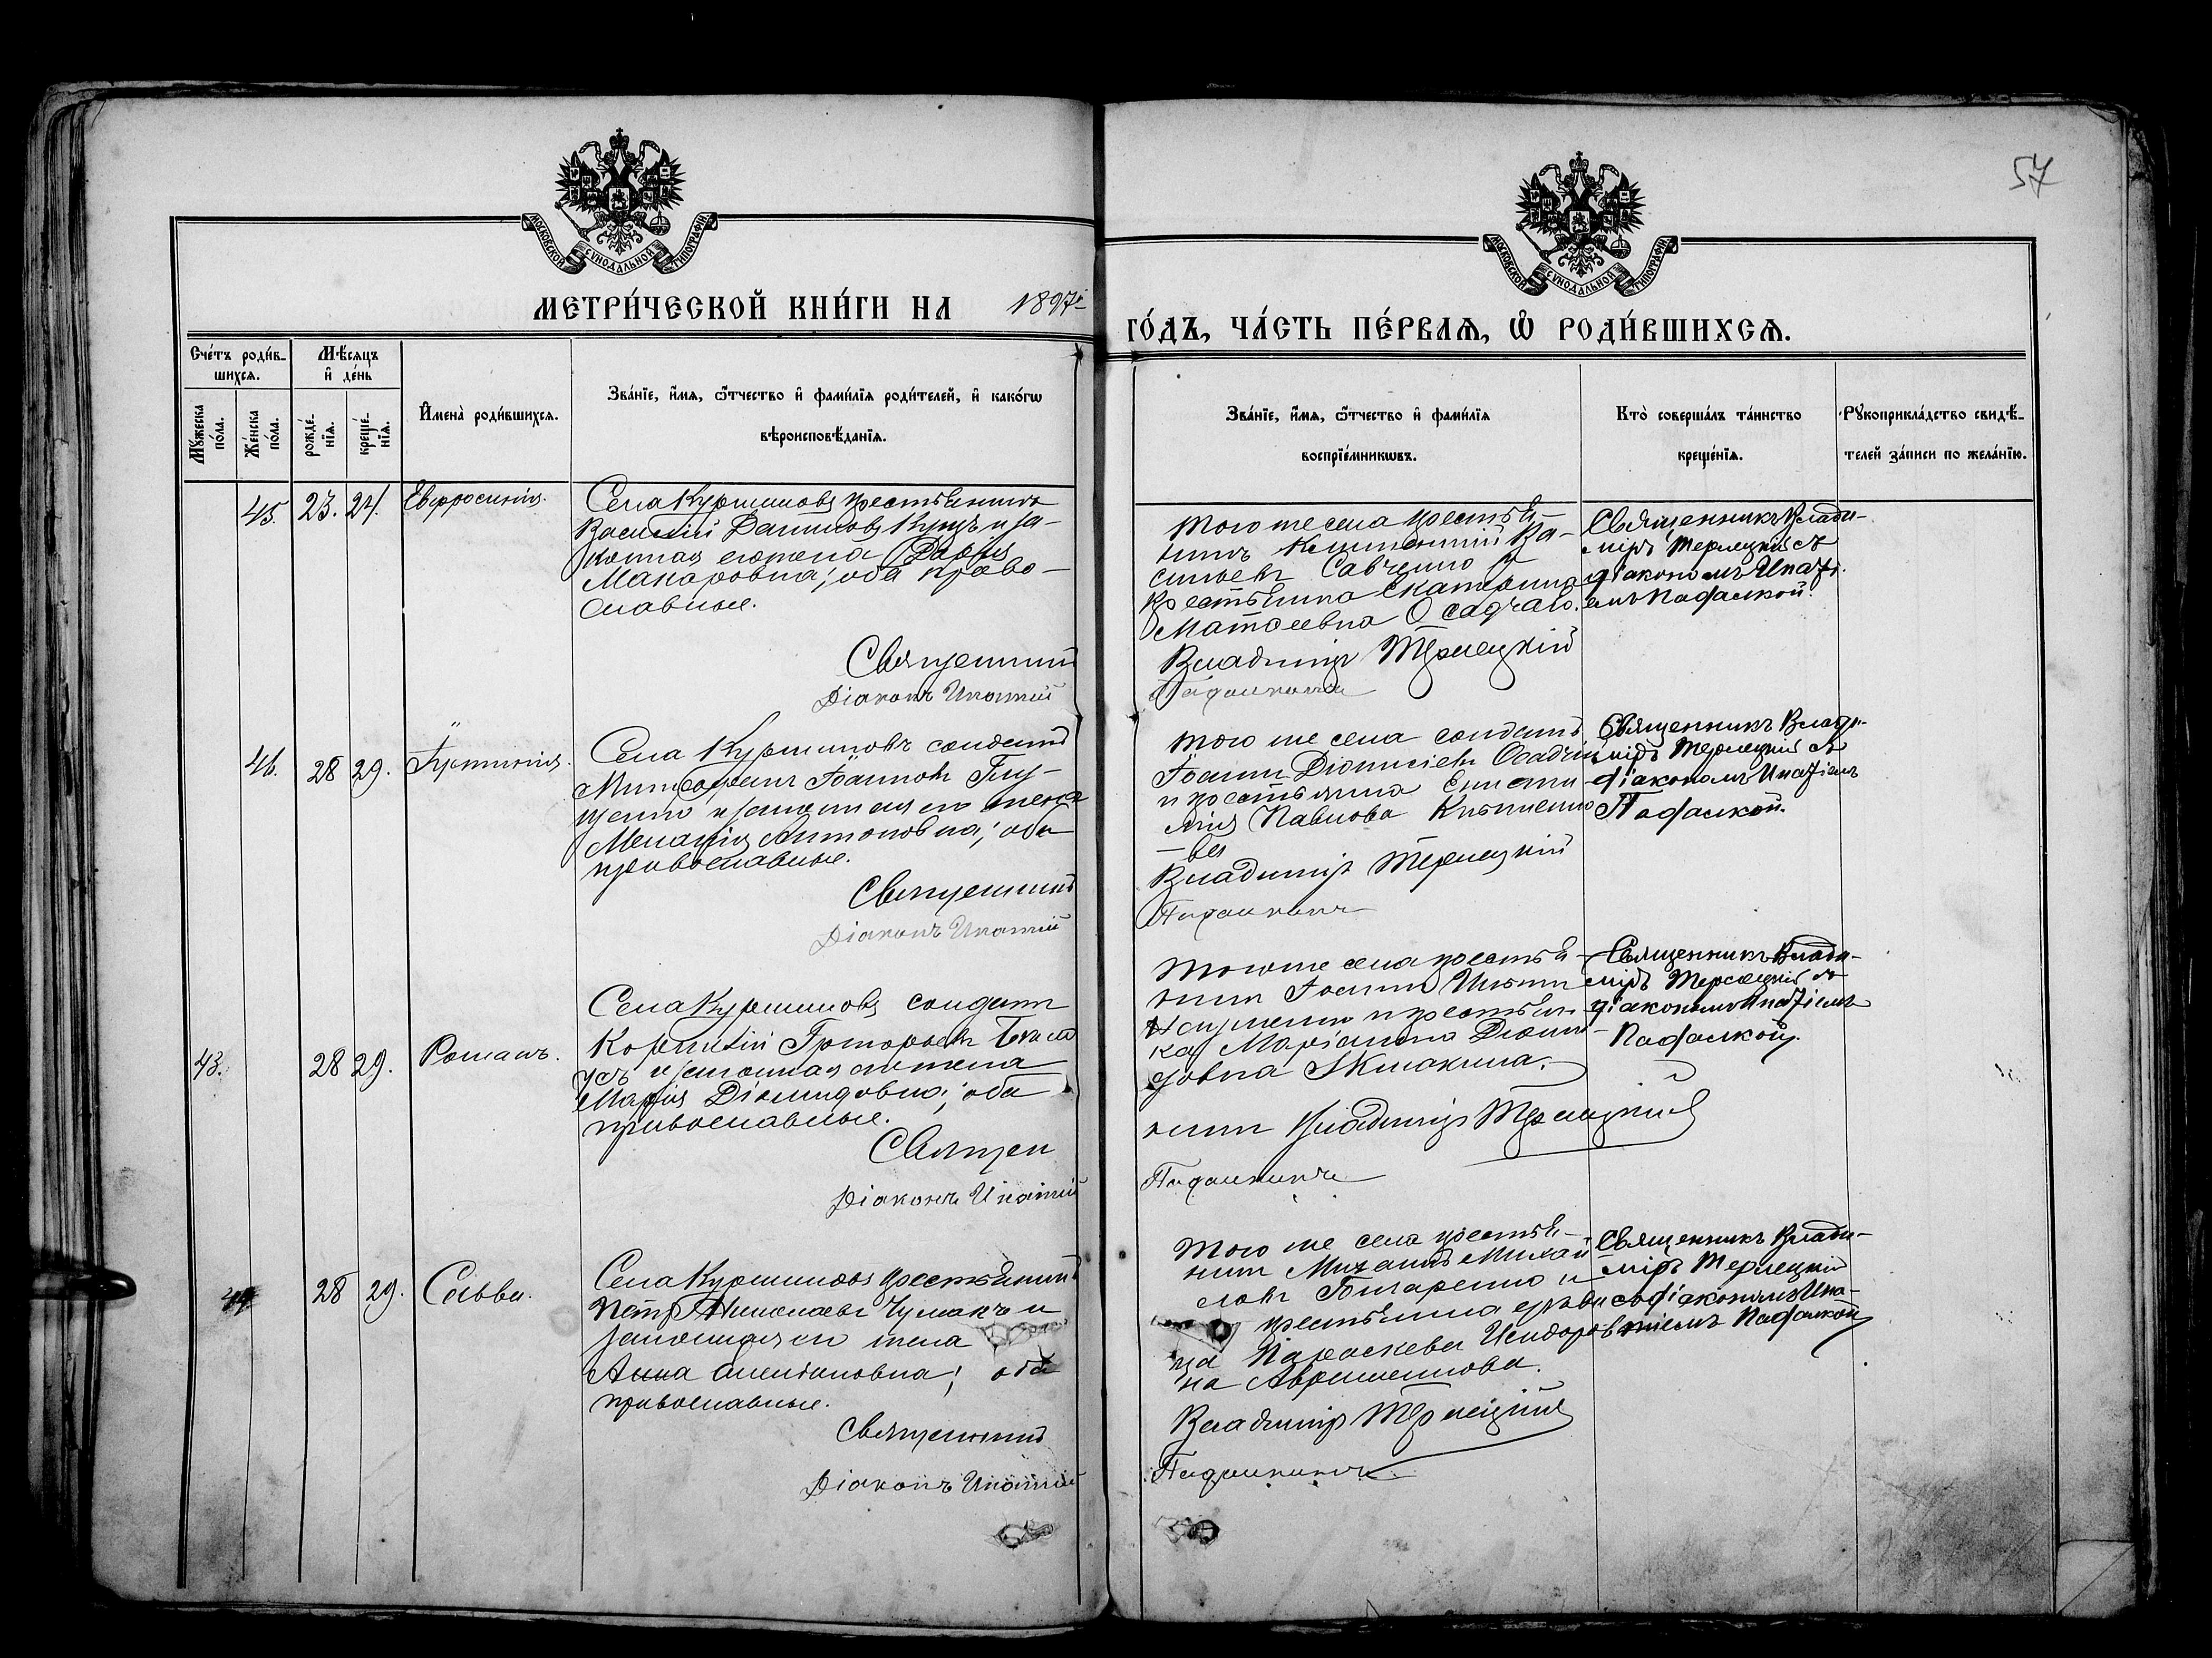 57
МОСКОВСКОЙ СѴНОДАЛЬНОЙ ТИПОГРАФІИ
МОСКОВСКОЙ СѴНОДАЛЬНОЙ ТИПОГРАФІИ
МЕТРИ́ЧЕСКОЙ КНИ́ГИ НА 1897
ГО́ДЪ, ЧА́СТЬ ПЕ́РВАѦ, Ѽ РОДИ́ВШИХСѦ.
Сче́тъ роди́в-
шихсѧ.
Мꙋ́жеска
по́ла.
Же́нска
по́ла.
Мѣ́сѧцъ
и҆ де́нь
рожде́-
нїѧ.
креще́-
нїѧ.
И҆мена̀ роди́вшихсѧ.
Зва́нїе, и҆́мѧ, ѻ҆́тчество и҆ фами́лїѧ роди́телей, и҆ како́гѡ
вѣроисповѣ́данїѧ.
Зва́нїе, и҆́мѧ, ѻ҆́тчество и҆ фами́лїѧ
воспрїе́мникѡвъ.
Кто̀ соверша́лъ та́инство
креще́нїѧ.
Рꙋкоприкла́дство свидѣ́-
телей за́писи по жела́нїю.
45. 23. 24. Евфросинія.
Села Куршиновъ крестьянинъ
Василій Даниловъ и за-
конная его жена Дарія
Макаровна; оба право-
славные.
Священникъ
Діаконъ Ипатій
Того же села крестья-
нинъ Ва-
сильевъ Савченко и
крестьянка Екатерина
Матѳеевна Осадчаго.
Владиміръ Терлецкій
Падалкинъ
Священникъ Влади-
міръ Терлецкій съ
діакономъ Ипаті-
емъ Падалкой.
46. 28 29.
Села Куршиновъ солдатъ
Митрофанъ Іоанновъ Глу-
щенко и законная его жена
Меланія Антоновна; оба
православные.
Священникъ
Діаконъ Ипатій
Того же села солдатъ
Іоаннъ Діонисіевъ Осадчій
и крестьянка
Павлова
-ва
Владиміръ Терлецкій
Падалкинъ
Священникъ Влади-
міръ Терлецкій съ
діакономъ Ипатіемъ
Падалкой.
43. 28 29. Романъ.
Села Куршиновъ солдатъ
Корнилій Григорьевъ
и законная его жена
Марія Діомидовна; оба
православные.
Священ
Діаконъ Ипатій
Того же села крестья-
нинъ Іоаннъ
и крестьян-
ка Маріанна
довна
никъ Владиміръ Терлецкій
Падалкинъ
Священникъ Влади-
міръ Терлецкій съ
діакономъ Ипатіемъ
Падалкой.
44 28 29. Савва.
Села Куршиновъ крестьянинъ
Петръ Николаевъ Чумакъ и
законная его жена
Анна; оба
православные.
Священникъ
Діаконъ Ипатій
Того же села крестья-
нинъ Михаилъ Михай-
ловъ Гончаренко и
крестьянка вдови-
ца Параскева Исидоров-
на
Владиміръ Терлецкій
Падалкинъ
Священникъ Влади-
міръ Терлецкій
съ діакономъ Ипа-
тіемъ Падалкой